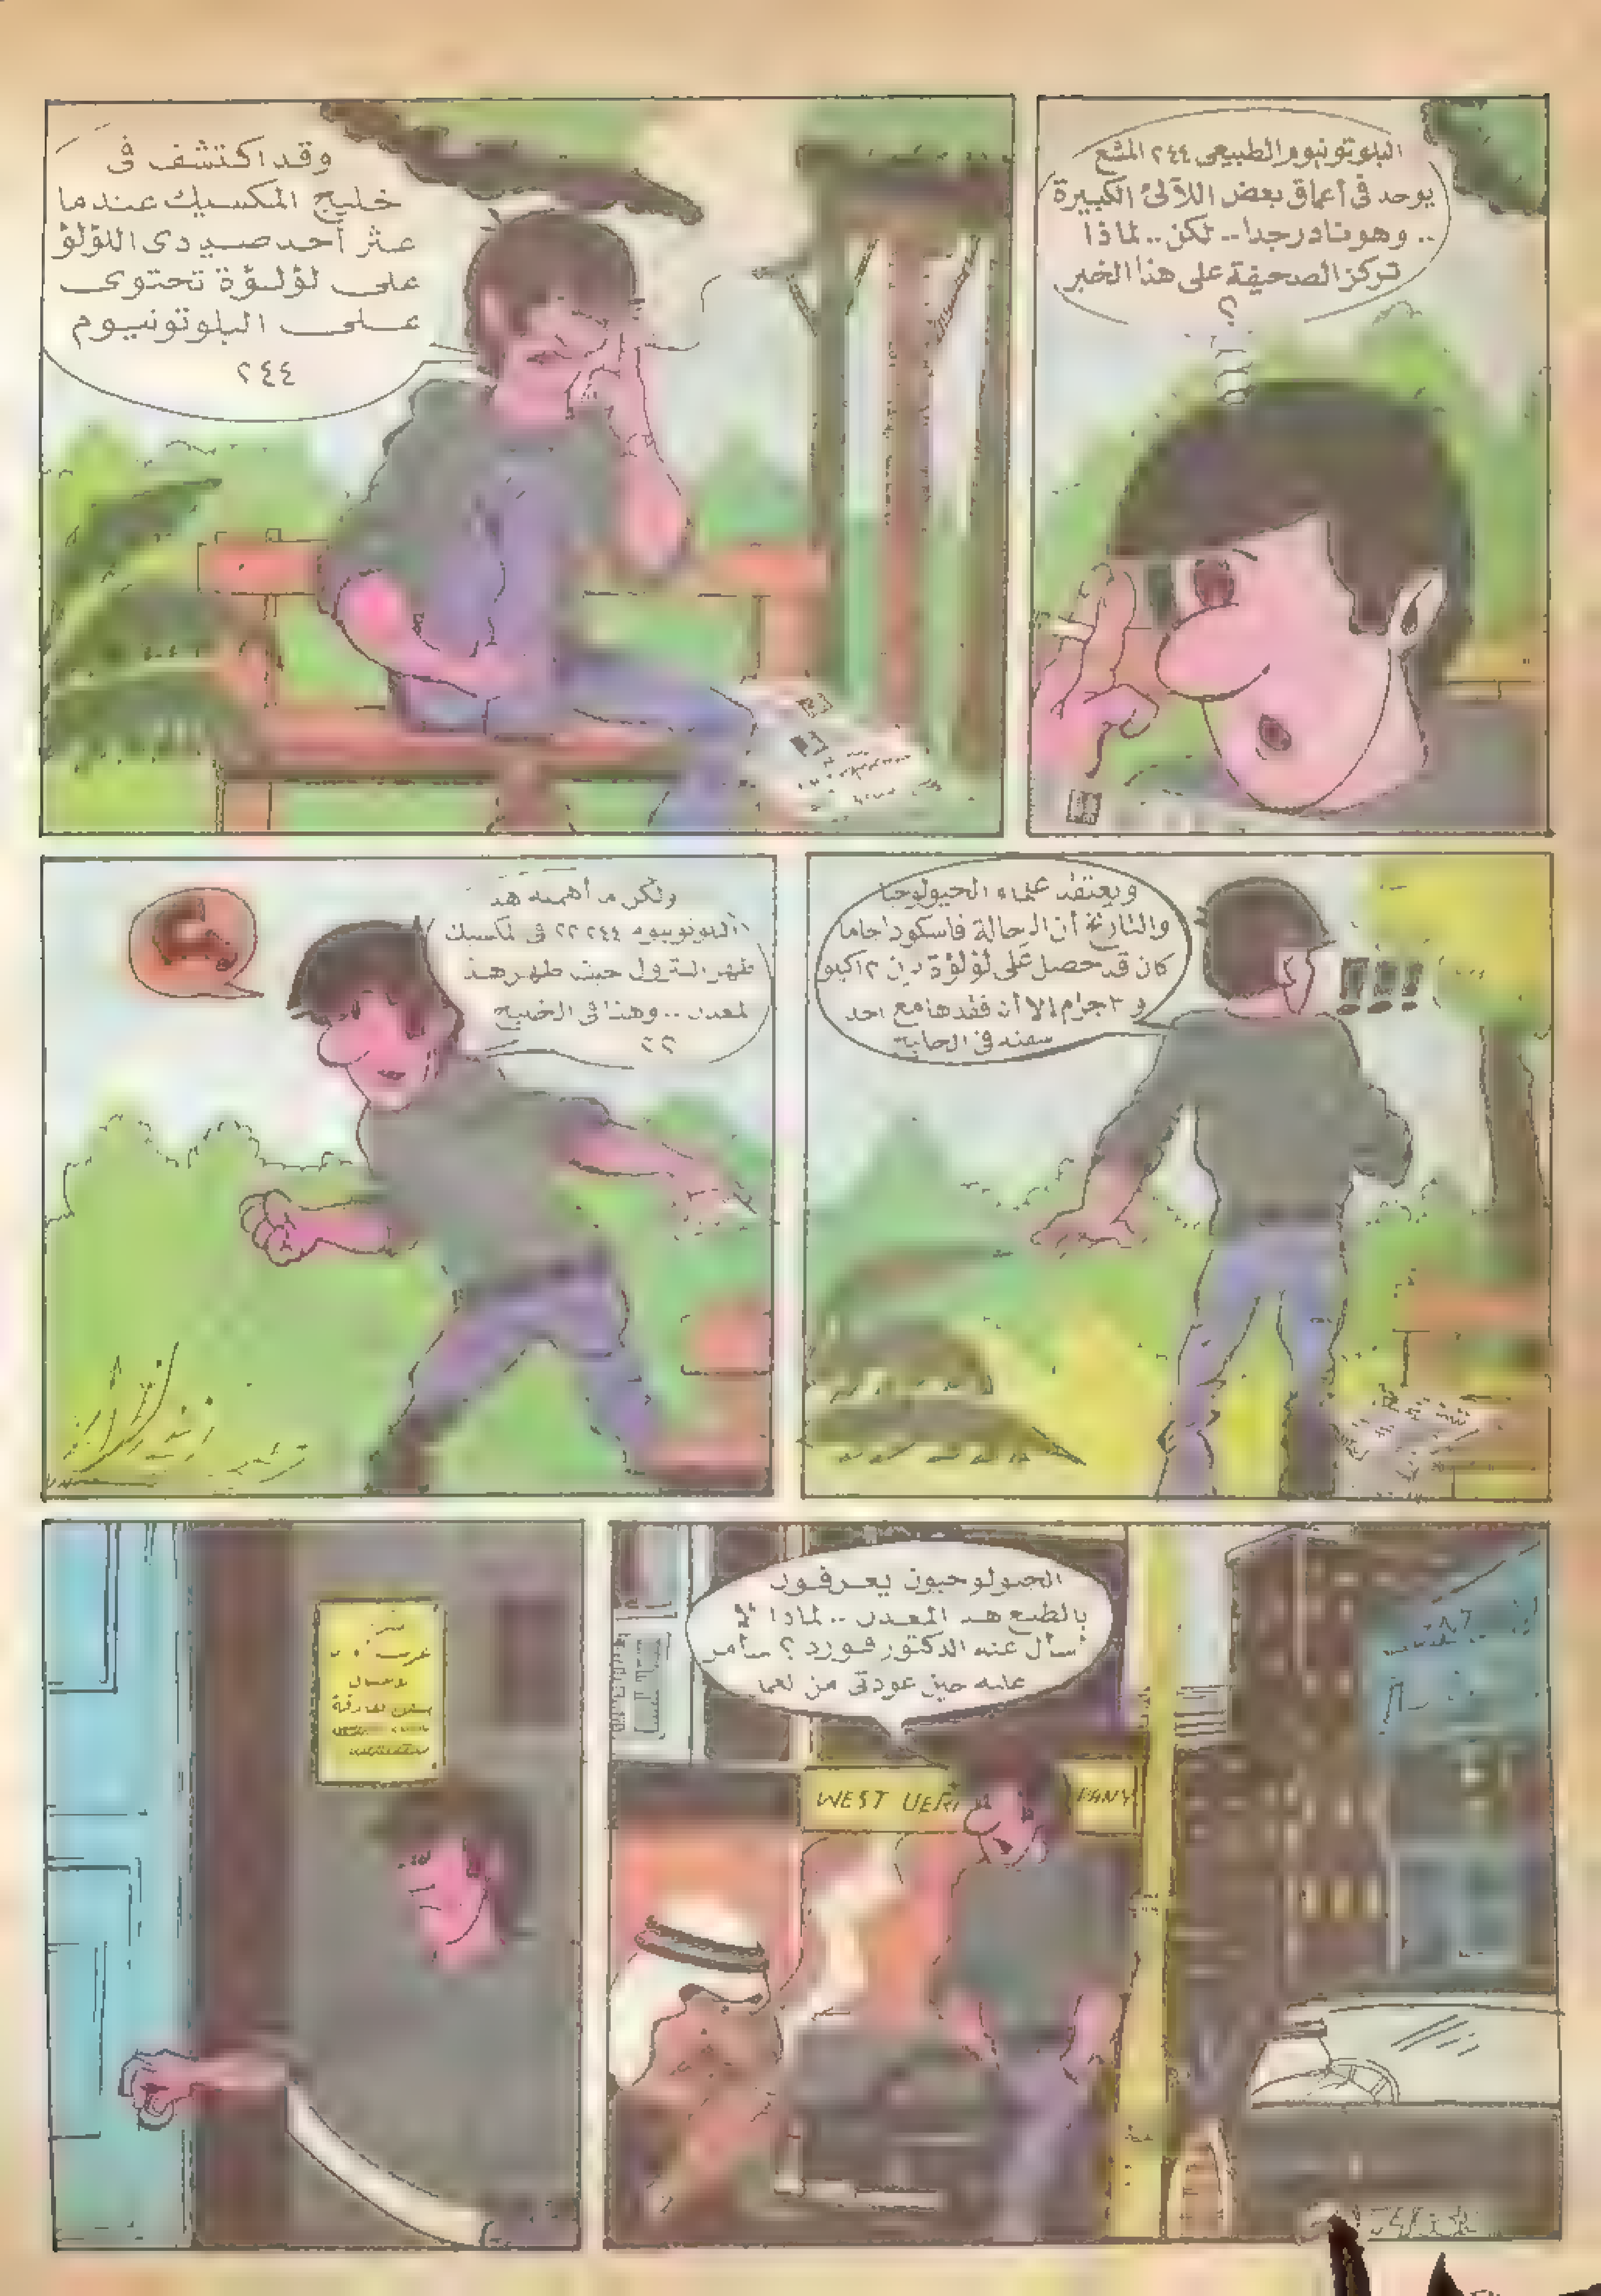 البلوتونيوم الطبيعى ٢٤٤ المشع
يوجد فى أعماق بعض اللآلئ الكبيرة
.. وهو نادر جدا .. لكن .. لماذا
تركز الصحيفة على هذا الخبر
؟
وقد اكتشف فى
خليج المكسيك عندما
عثر أحد صيادى اللؤلؤ
على لؤلؤة تحتوى
على البلوتونيوم
٢٤٤
ويعتقد علماء الجيولوجيا
والتاريخ أن الرحالة فاسكودا جاما
كان قد حصل على لؤلؤة
جرام إلا أن فقدها مع احد
سفنه فى
!!!
ولكن ما أهمية هذا
البلوتونيوم ٢٤٤ ؟؟ فى المكسيك
ظهر البترول حيث ظهر هذا
المعدن .. وهنا فى الخليج
؟؟
الجيولوجيون يعرفون
بالطبع هذا المعدن .. لماذا لا
أسأل عنه الدكتور فورد ؟ سأمر
عليه حين عودتى من
WEST
PANY